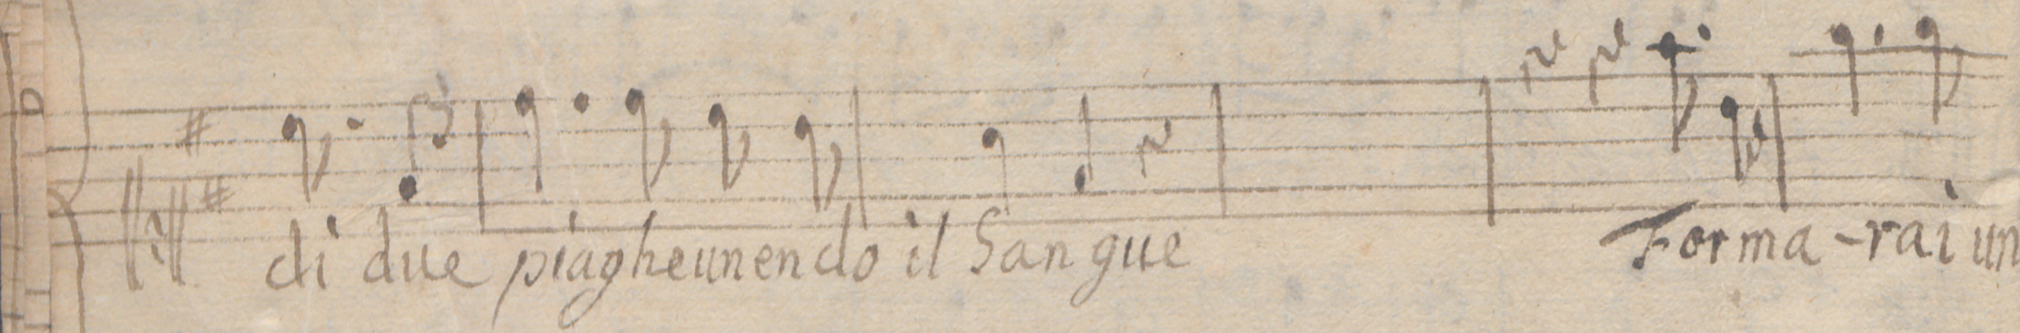 di due piaghe unendo il Sangue Forma-rai un